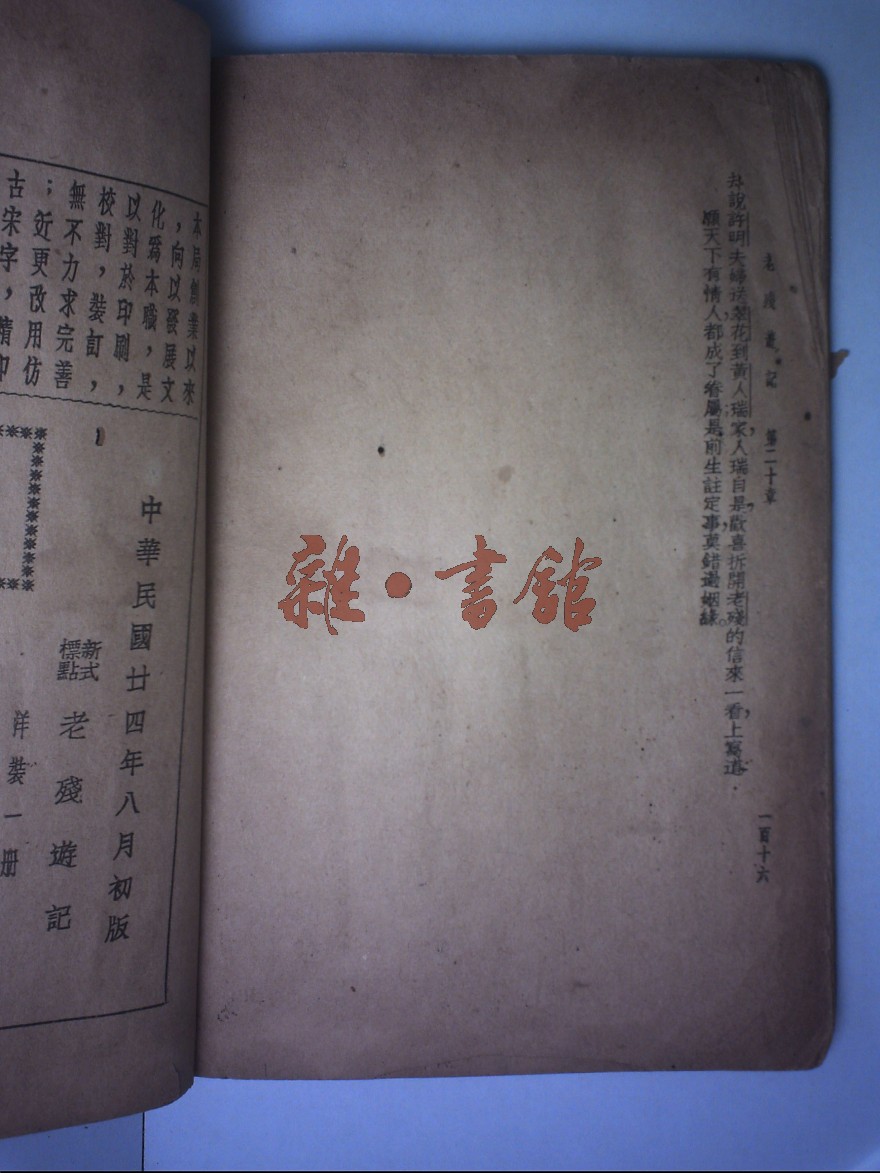 老殘遊記 第二十章 一百十六
却說許明夫婦送翠花到黃人瑞家，人瑞自是歡喜，拆開老殘的信來一看，上寫道：
願天下有情人，都成了眷屬；是前生註定事，莫錯過姻緣。
雜·書館
本局創業以來
，向以發展文
化爲本職，是
以對於印刷，
校對，裝訂，
無不力求完善
；近更改用仿
古宋字，精印
中華民國廿四年八月初版
新式標點 老殘遊記
洋裝一册